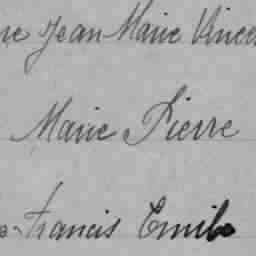 Jean Marie Vincen
Marie Pierre
Francis Emile